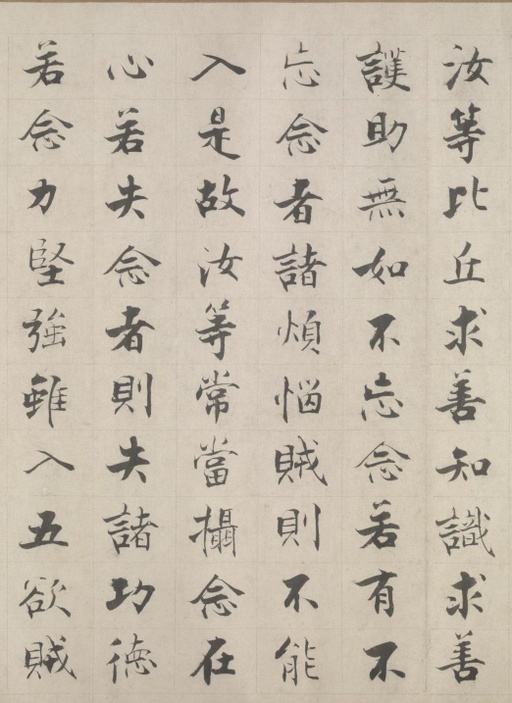 汝等比丘求善知識求善
護助無如不忘念若有不
忘念者諸煩惱賊則不能
入是故汝等常當攝念在
心若失念者則失諸功德
若念力堅強雖入五欲賊